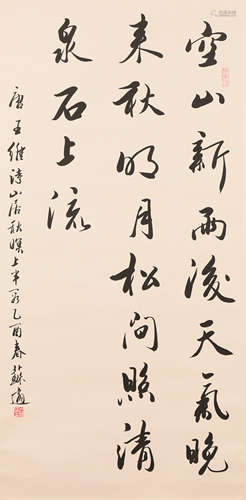 空山新雨後天氣晚
来秋明月松间照清
泉石上流
唐王維诗山居秋暝上半首乙酉春蘇適